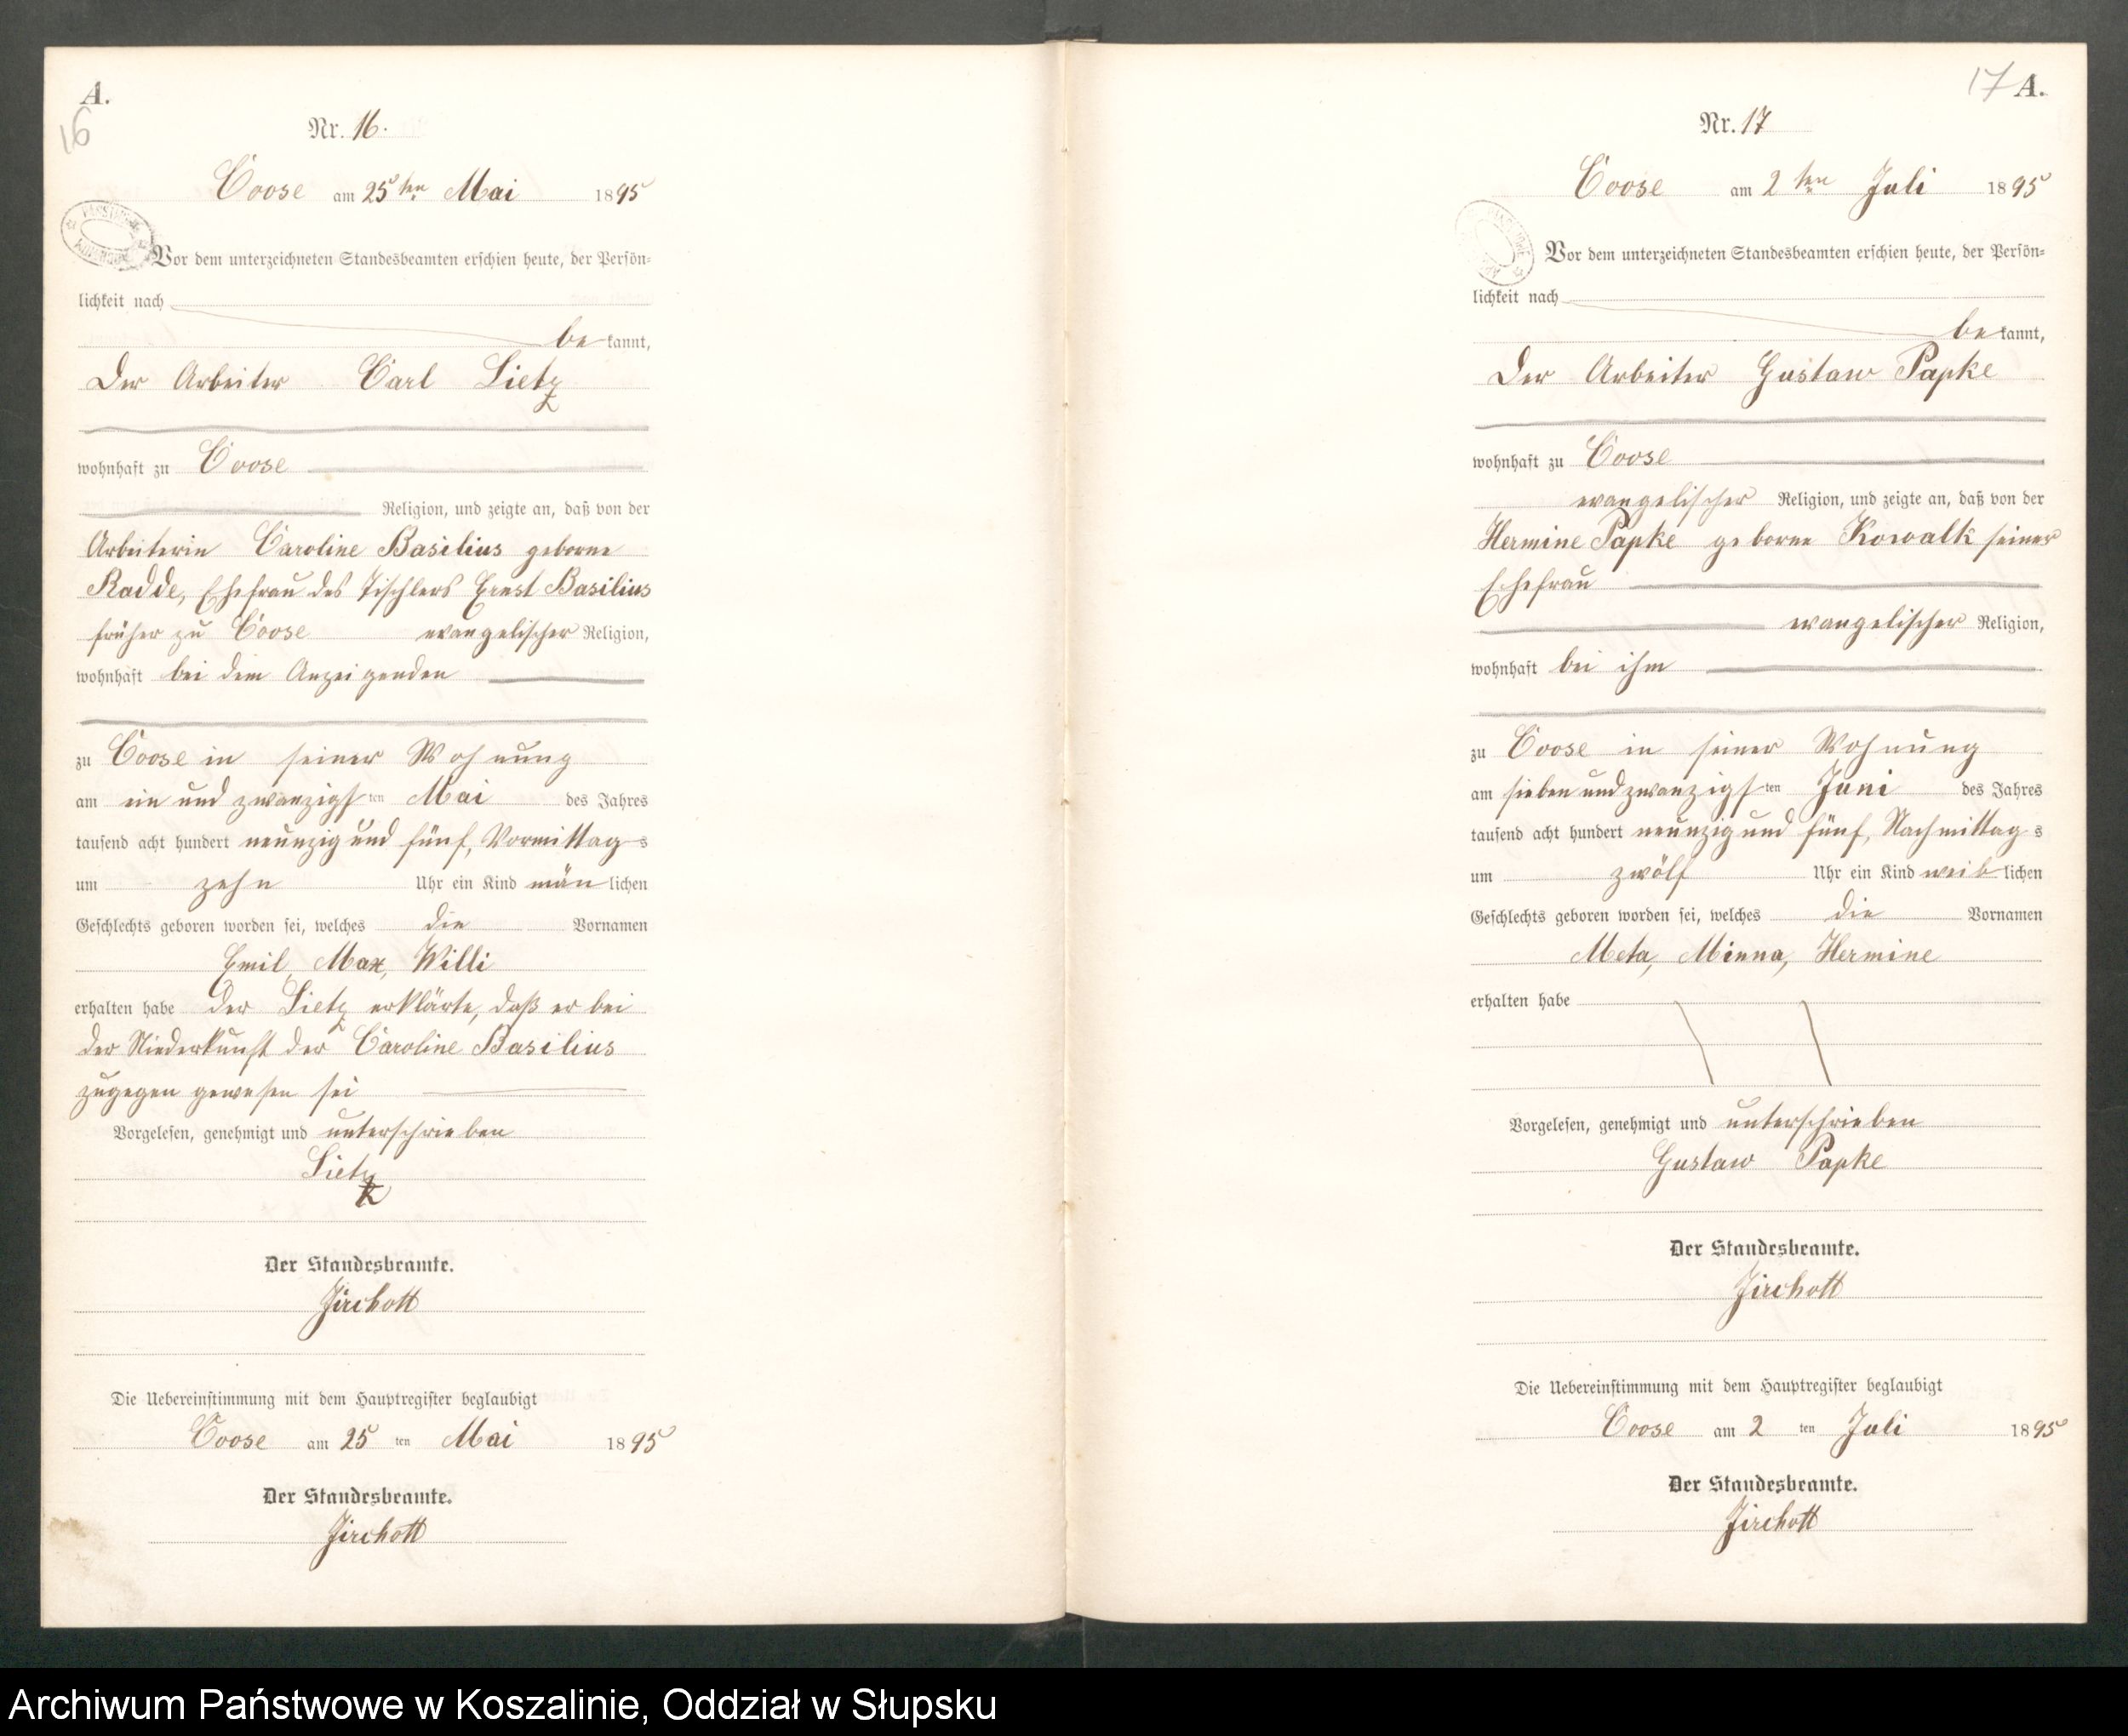 A.
16
Nr. 16.
Coose am 25ten Mai 1895
Vor dem unterzeichneten Standesbeamten erschien heute, der Persön=
lichkeit nach
be kannt,
Der Arbeiter Carl Lietz
wohnhaft zu Coose
Religion, und zeigte an, daß von der
Arbeiterin Caroline Basilius geborne
Radde, Ehefrau des Tischlers Ernst Basilius
früher zu Coose evangelischer Religion,
wohnhaft bei dem Anzeigenden
zu Coose in seiner Wohnung
am ein und zwanzigsten Mai des Jahres
tausend acht hundert neunzig und fünf, Vormittags
um zehn Uhr ein Kind män lichen
Geschlechts geboren worden sei, welches die Vornamen
Emil, Max, Willi
erhalten habe Der Lietz erklärte, daß er bei
der Niederkunft der Caroline Basilius
zugegen gewesen sei
Vorgelesen, genehmigt und unterschrieben
Lietz
Der Standesbeamte.
Jirchott
Die Uebereinstimmung mit dem Hauptregister beglaubigt
Coose am 25 ten Mai 1895
Der Standesbeamte.
Jirchott
17 A.
Nr. 17
Coose am 2ten Juli 1895
Vor dem unterzeichneten Standesbeamten erschien heute, der Persön=
lichkeit nach
be kannt,
Der Arbeiter Gustaw Papke
wohnhaft zu Coose
evangelischer Religion, und zeigte an, daß von der
Hermine Papke geborne Kowalk seiner
Ehefrau
evangelischer Religion,
wohnhaft bei ihm
zu Coose in seiner Wohnung
am sieben und zwanzigsten Juni des Jahres
tausend acht hundert neunzig und fünf, Nachmittags
um zwölf Uhr ein Kind weib lichen
Geschlechts geboren worden sei, welches die Vornamen
Meta, Minna, Hermine
erhalten habe
Vorgelesen, genehmigt und unterschrieben
Gustaw Papke
Der Standesbeamte.
Jirchott
Die Uebereinstimmung mit dem Hauptregister beglaubigt
Coose am 2 ten Juli 1895
Der Standesbeamte.
Jirchott
Archiwum Państwowe w Koszalinie, Oddział w Słupsku